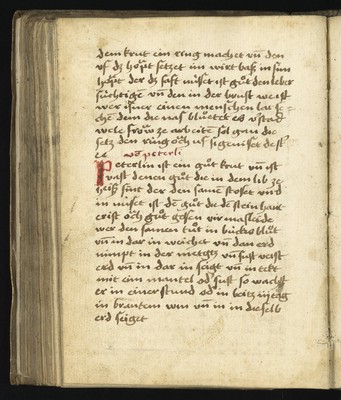 dem krut ein ring machet vn̄ den
vf dz hopt setzet im wirt baß in sim
hopt der dz saft nüset ist gůt den leber
süchtigē vn̄ den in der brust we ist
wer über einen menschen lat
chen dem die nas blůtet es v̾stad
wele frow ze arbeitē sol gan die
setz den ring och uf si geniset dest
ee vō peterli
Peterlin ist ein gůt krut vn̄ ist
vast denen gůt die in dem lib ze
heiß sint der den samē stoset vnd
in nüset ist dē gůt de dē stein hart
er ist och gůt gesen
wer den samen tůt in bucks blůt
vn̄ in dar in weichet vn̄ dan erd
nimpt in der metzg vn̄ fust vast
erd vn̄ in dar in seigt vn̄ in tekt
mit eim mantel od̾ sust so wachst
er in einer stund od̾ in
in brantem win vn̄ in in dieselb
erd seiget